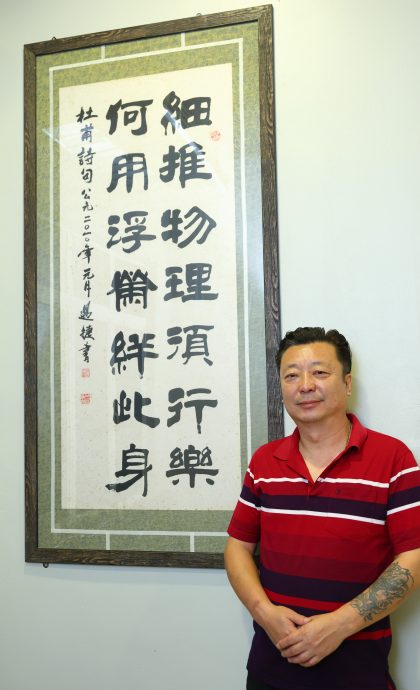 細推物理須行樂
何用浮榮絆此身
杜甫詩句 公元二〇一〇年元月 捷書